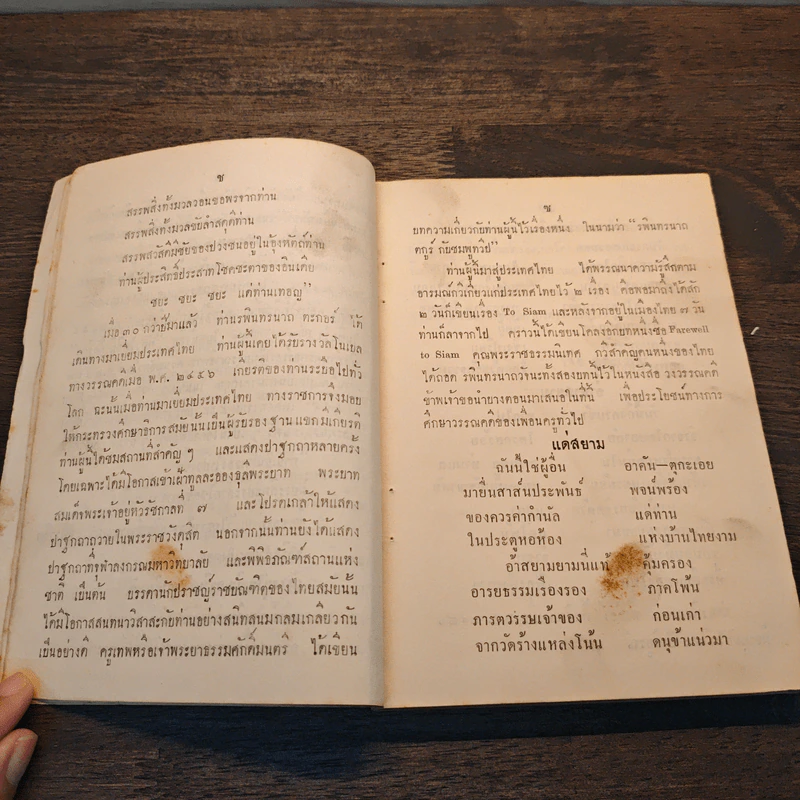 ช
สรรพสิ่งทั้งมวลวอนขอพรจากท่าน
สรรพสิ่งทั้งมวลขยับลำสดุดีท่าน
สรรพสวัสดิมีชัยของปวงชนอยู่ในอุ้งหัตถ์ท่าน
ท่านผู้ประสิทธิ์ประสาทโชคชะตาของอินเดีย
ชยะ ชยะ ชยะ แด่ท่านเทอญ"
เมื่อ ๓๐ กว่าปีมาแล้ว ท่านรพินทรนาถ ตะกอร์ ได้
เดินทางมาเยี่ยมประเทศไทย ท่านผู้นี้เคยได้รับรางวัลโนเบล
ทางวรรณคดีเมื่อ พ.ศ. ๒๔๕๖ เกียรติของท่านระบือไปทั่ว
โลก ฉะนั้นเมื่อท่านมาเยี่ยมประเทศไทย ทางราชการจึงมอบ
ให้กระทรวงศึกษาธิการสมัยนั้นเป็นผู้รับรองฐานแขกมีเกียรติ
ท่านผู้นี้ได้ชมสถานที่สำคัญ ๆ และแสดงปาฐกถาหลายครั้ง
โดยเฉพาะได้มีโอกาสเข้าเฝ้าทูลละอองธุลีพระบาท พระบาท
สมเด็จพระเจ้าอยู่หัวรัชกาลที่ ๗ และโปรดเกล้าให้แสดง
ปาฐกถาถวายในพระราชวังดุสิต นอกจากนั้นท่านยังได้แสดง
ปาฐกถาที่จุฬาลงกรณมหาวิทยาลัย และพิพิธภัณฑ์สถานแห่ง
ชาติ เป็นต้น บรรดานักปราชญ์ราชบัณฑิตของไทยสมัยนั้น
ได้มีโอกาสสนทนาวิสาสะกับท่านอย่างสนิทสนมกลมเกลียวกัน
เป็นอย่างดี ครูเทพหรือเจ้าพระยาธรรมศักดิ์มนตรี ได้เขียน
ซ
บทความเกี่ยวกับท่านผู้นี้ไว้เรื่องหนึ่ง ในนามว่า "รพินทรนาถ
ตกูร์ กับชมพูทวีป"
ท่านผู้นี้มาสู่ประเทศไทย ได้พรรณนาความรู้สึกตาม
อารมณ์กวีเกี่ยวแก่ประเทศไทยไว้ ๒ เรื่อง คือพอมาถึงได้สัก
๒ วันก็เขียนเรื่อง To Siam และหลังจากอยู่ในเมืองไทย ๗ วัน
ท่านก็ลาจากไป คราวนี้ได้เขียนโคลงอีกบทหนึ่งชื่อ Farewell
to Siam คุณพระราชธรรมนิเทศ กวีสำคัญคนหนึ่งของไทย
ได้ถอด รพินทรนาถวัจนะทั้งสองบทนี้ไว้ในหนังสือ วงวรรณคดี
ข้าพเจ้าขอนำบางตอนมาเสนอในที่นี้ เพื่อประโยชน์ทางการ
ศึกษาวรรณคดีของเพื่อนครูทั่วไป
แด่สยาม
ฉันนี้ใช่ผู้อื่น อาคัน—ตุกะเอย
มายื่นสาส์นประพันธ์ พจน์พร้อง
ของควรค่ากำนัล แด่ท่าน
ในประตูหอห้อง แห่งบ้านไทยงาม
อ้าสยามยามนี้แท้ คุ้มครอง
อารยะธรรมเรืองรอง ภาคโพ้น
ภารตวรรษเจ้าของ ก่อนเก่า
จากวัดร้างแหล่งโน้น ดนุข้าแน่วมา